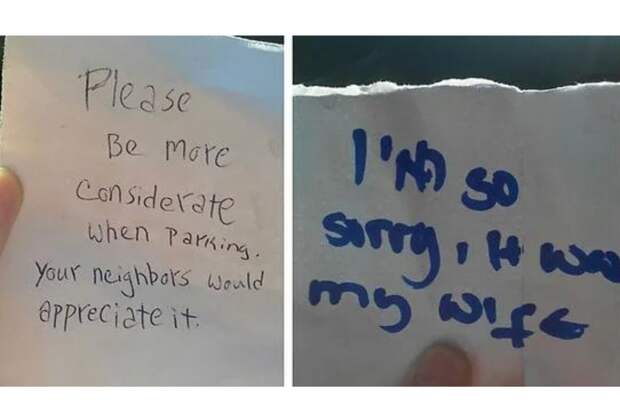 Please
Be more
considerate
when parking.
your neighbors would
appreciate it.
I'm so
sorry, it was
my wife